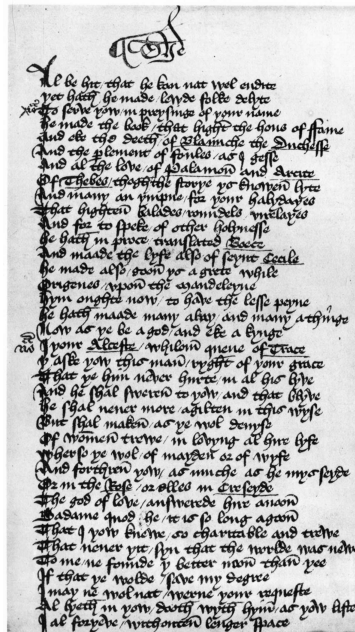 Al be hit that he kan nat wel endite
yet hath he made lewde folke delyte
To serve yow in preysinge of your name
He made the book that hight the hous of ffame
And eke the deeth of Blaunche the Duchesse
And the plement of foules as I gesse
And al the love of Palamon and Arcite
Of Thebes thogh the storye ys knowen lyte
And many an ympne for your halydayes
That highten balades roundels vyrelayes
And for to speke of other holynesse
He hath in prose translated Boece
And maade the lyfe also of seynt Cecile
He made also goon ys a grete while
Origenes vpon the Maudeleyne
Hym oughte now to have the lesse peyne
He hath maade many a lay and many a thinge
Now as ye be a god and eke a kynge
I your Alceste whilom quene of Trace
Y aske yow this man ryght of your grace
That ye him never hurte in al his lyve
And he shal sweren to yow and that blyve
He shal never more agilten in this wyse
But shal maken as ye wol devyse
Of women trewe in lovyng al hire lyfe
Wherso ye wol of mayden or of wyfe
And forthren yow as muche as he mysseyde
Or in the Rose or elles in Creseyde
The god of love answerede hire anoon
Madame quod he it is so long agoon
That I yow knewe so charitable and trewe
That never yt syn that the worlde was new
To me ne founde y better noon than yee
If that ye wolde save my degree
I may ne wol nat werne your requeste
Al lyeth in yow dooth wyth hym as yow liste
I al foryeve withouten lenger space